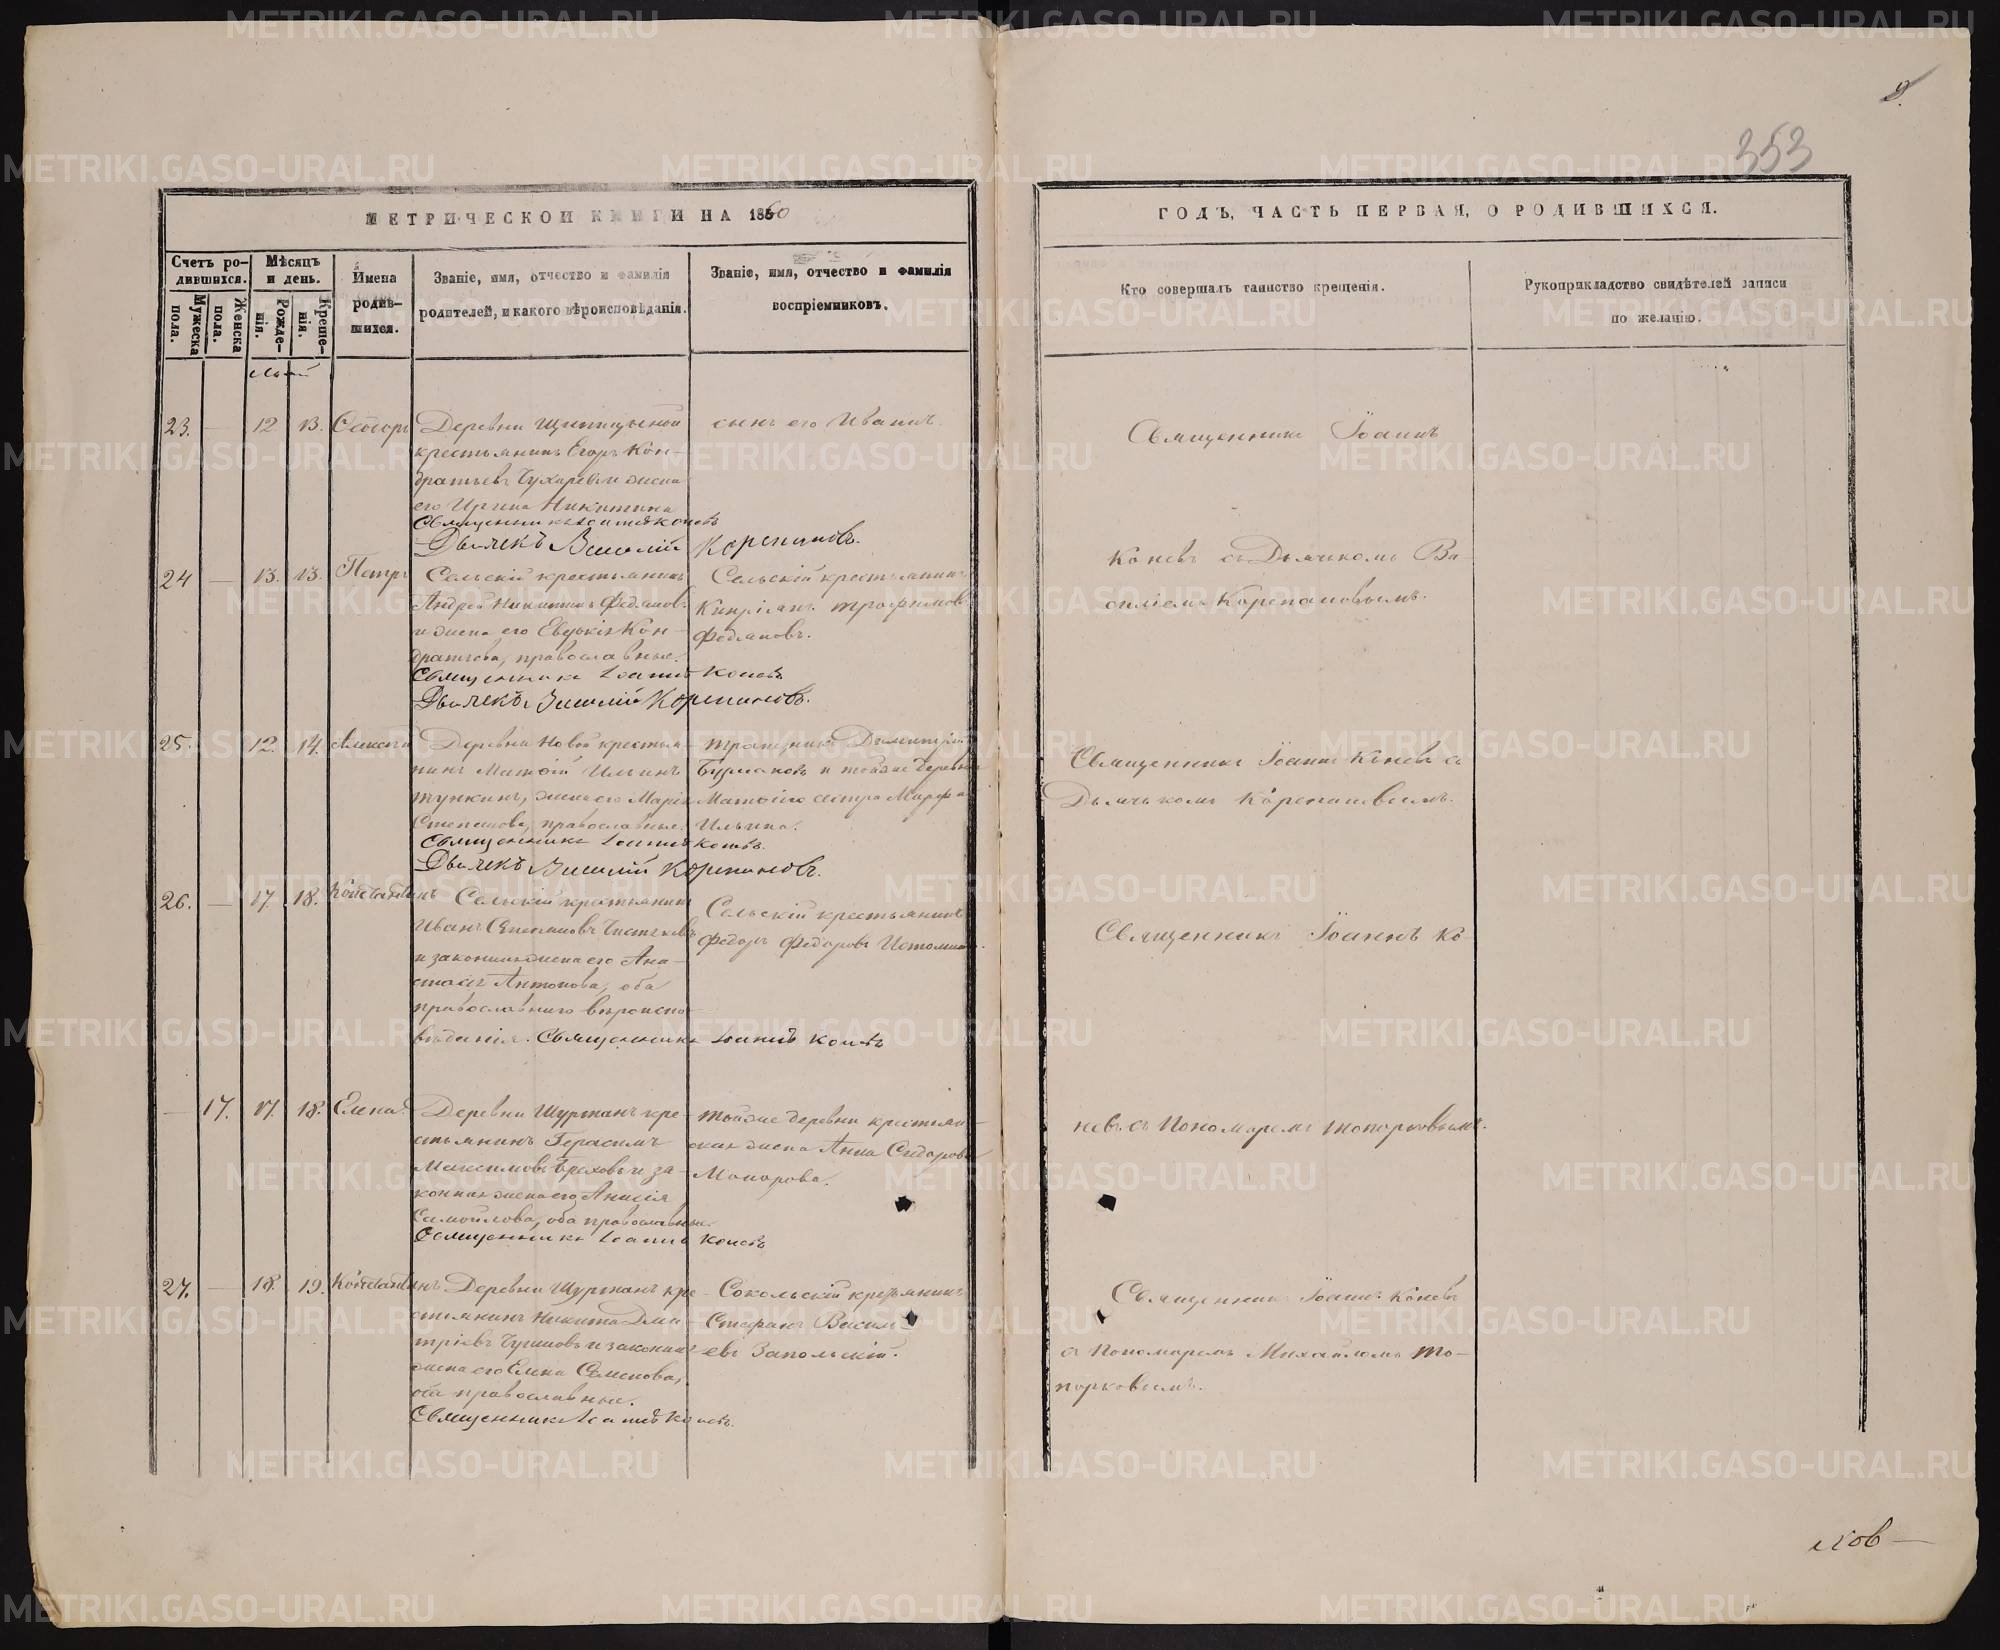 9.
353
МЕТРИЧЕСКОЙ КНИГИ НА 1860
ГОДЪ, ЧАСТЬ ПЕРВАЯ, О РОДИВШИХСЯ.
Счетъ ро-
дившихся.
Мужеска
пола.
Женска
пола.
Мѣсяцъ
и день.
Рожде-
нія.
Креще-
нія.
Имена
родив-
шихся.
Званіе, имя, отчество и фамилія
родителей, и какого вѣроисповѣданія.
Званіе, имя, отчество и фамилія
воспріемниковъ.
Кто совершалъ таинство крещенія.
Рукоприкладство свидѣтелей записи
по желанію.
Май
23. — 12 13.
Деревни
крестьянинъ Егоръ Кон-
дратьевъ Бухаревъ и жена
его Ирина Никитина
сынъ его Иванъ.
Священникъ Іоаннъ Коневъ
Дьячекъ Василій Корепановъ.
Священникъ Іоаннъ
Коневъ съ Дьячкомъ Ва-
силіемъ Корепановымъ.
24 — 13. 13. Петръ
Сельскій крестьянинъ
Андрей Никитинъ
и жена его Евдокія Кон-
дратьева, православные.
Сельскій крестьянинъ
Кипріанъ Трофимовъ
Священникъ Іоаннъ Коневъ
Дьячекъ Василій Корепановъ.
25. 12. 14. Алексѣй
Деревни Новой крестья-
нинъ Матѳій Ильинъ
жена его Марія
Степанова, православные.
Трапезникъ Димитрій
и тойже деревни
Матѳія сестра Марфа
Ильина.
Священникъ Іоаннъ Коневъ
Дьячекъ Василій Корепановъ.
Священникъ Іоаннъ Коневъ съ
Дьячькомъ Корепановымъ.
26. — 17. 18. Константинъ
Сельскій крестьянинъ
Иванъ Степановъ
и законная жена его Ана-
стасія Антонова, оба
православнаго вѣроиспо-
вѣданія. Священникъ Іоаннъ Коневъ
Сельскій крестьянинъ
Федоръ Федоровъ Истоминъ.
Священникъ Іоаннъ Ко-
— 17. 17. 18. Елена
Деревни Шуртанъ кре-
стьянинъ Герасимъ
Максимовъ и за-
конная жена его Анисія
Самойлова, оба православные.
Священникъ Іоаннъ Коневъ
тойже деревни крестьян-
ская жена Анна Сидорова
невъ съ Пономаремъ Топорковымъ.
27. — 18. 19. Константинъ
Деревни Шуртанъ кре-
стьянинъ Никита Дми-
тріевъ и законная
жена его Елена Семенова,
оба православные.
Священникъ Іоаннъ Коневъ.
Сокольскій
Стефанъ Василь-
евъ Запольскій.
Священникъ Іоаннъ Коневъ
съ Пономаремъ Михаиломъ То-
порковымъ.
METRIKI.GASO-URAL.RU